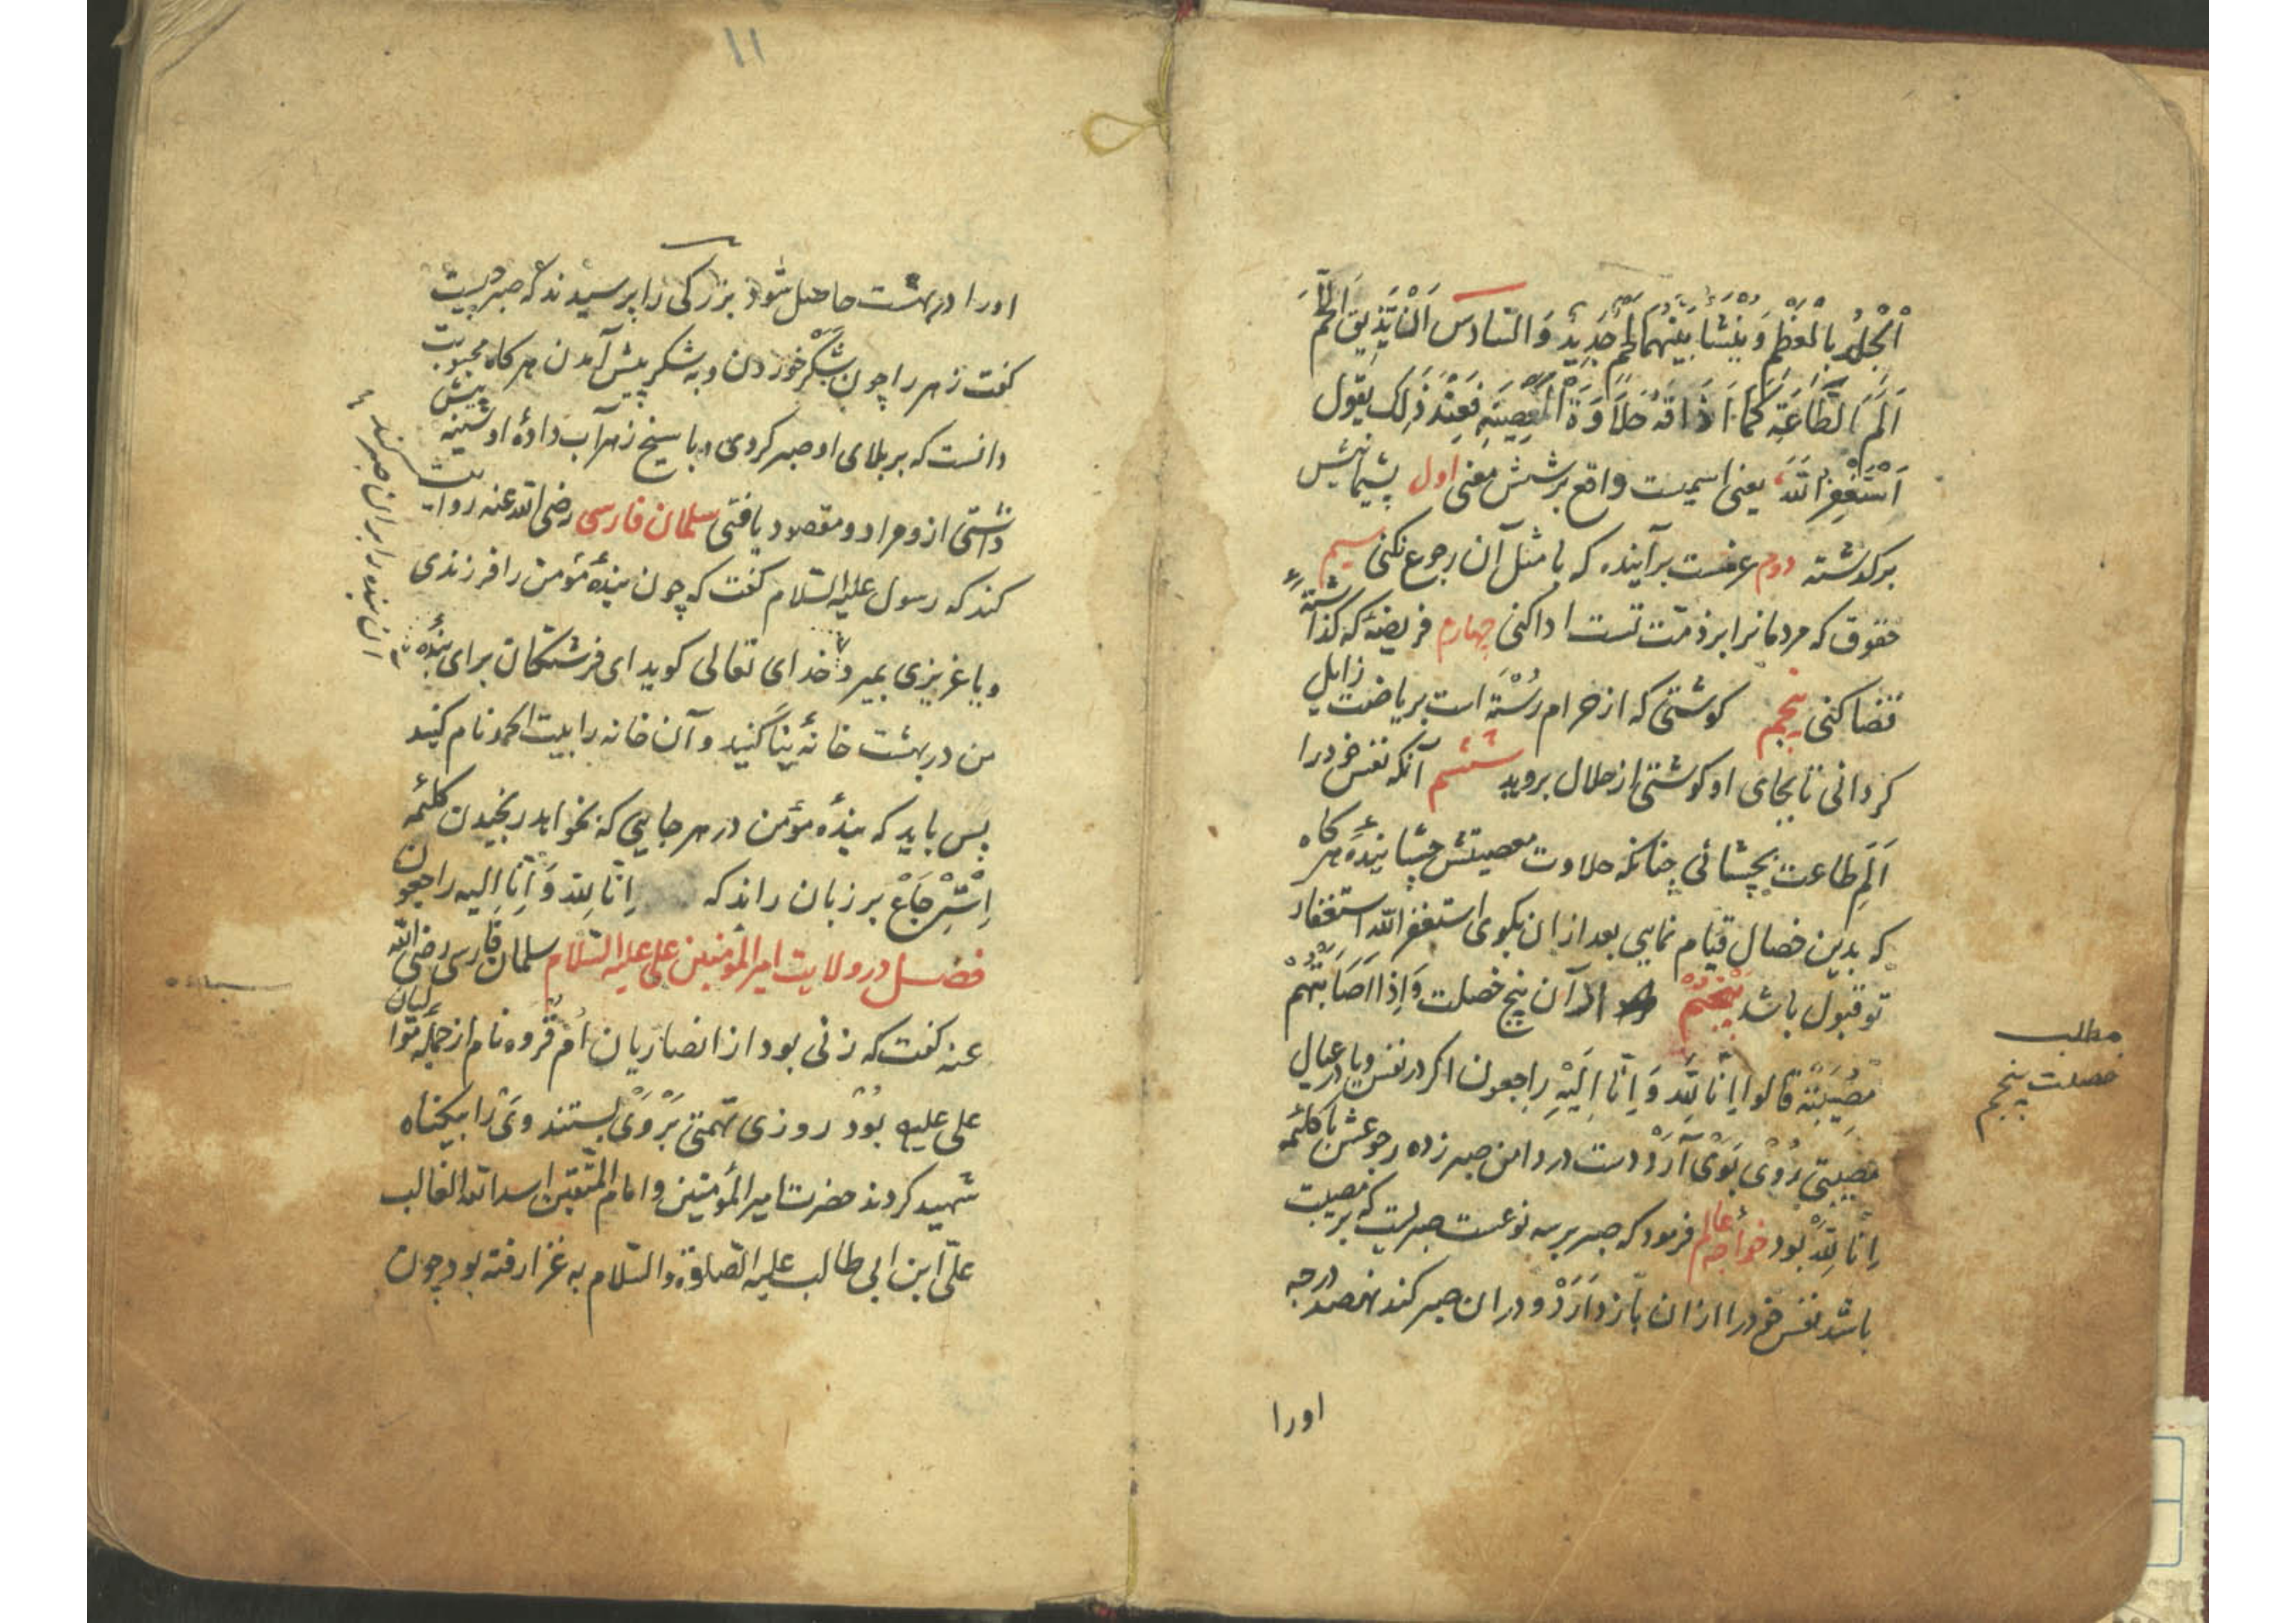 اَلْجِلْدُ بِالْعَظْمِ وَ يَنْشَأَ بَيْنَهُما لَحْمٌ جَدِيدٌ وَ السّادسَ اَنْ تُذيقَ الْجِسْمَ
اَلَمَ الطَّاعَةِ كَمَا اَذَاقَهُ حَلَاوَةَ الْمَعْصِيَةِ فَعِنْدَ ذَلِكَ یقول
اَسْتَغْفِرُ اللهَ یعنی اسمیست واقع بر شش معنی اول پشیمانیش
برکذشته دوم عزمست برآینده که با مثل آن رجوع نکنی سیم
حقوق که مردمانرا بر ذمّت تست ادا کنی چهارم فریضهٔ که کذاشتهٔ
قضا کنی پنجم کوشتی که از حرام رُسْتَه است بریاضت زایل
کردانی تا بجای او کوشتی از حلال بروید ششم آنکه نفس خودرا
اَلَمِ طاعت بچشانی چنانکه حلاوت معصیتش چشانیدهٔ هرکاه
که بدین خصال قیام نمایی بعد ازان بکوی استغفر الله استغفار
تو قبول باشد پنجم از آن پنج خصلت وَاِذَا اَصَابَتْهُمْ
مُصِيبَتَةٌ قالوا اِنّا لِلّٰهِ وَ اِنّا اِلَيْهِ راجعون اکر در نفس ویا در عیال
مصیبتی رُوْی بَوْی آرَدْ دست در دامن صبر زده رجوعش با کلئمهٔ
اِنّا لِلّٰه بود خواجهٔ عالم فرمود که صبر بر سه نوعست صبریست که بر مصیبت
باشد نفس خودرا ازان بازدارَدْ و دران صبر کند نهصد درجه
اورا
مطلب
خصلت پنجم
۱۱
اورا در بهشت حاصل شود بزرکی را پرسیدند که صبر چیست
کفت زهر را چون شکر خوردن و به شکر پیش آمدن هرکاه محبوبت
دانست که بر بلای او صبر کردی و با سیخ زهر آب دادهٔ او سینه پیش
داشتی ازو مراد و مقصود یافتی سلمان فارسی رضی الله عنه روایت
کند که رسول علیه السّلام کفت که چون بندهٔ مؤمن را فرزندی
ویا عزیزی بمیرد خدای تعالی کوید ای فرشتکان برای بندهٔ
من در بهشت خانهٔ بنا کنید و آن خانه را بیت الحمد نام کنید
پس باید که بندهٔ مؤمن در هر جایی که بخواهد رنجیدن کلئمهٔ
اِسْتِرْجَاعْ بر زبان راند که اِنّا لِلّٰه وَ اِنّا اِلیه راجعون
فصل در ولایت امیر المؤمنین علی علیه السّلام سلمان فارسی رضی الله
عنه کفت که زنی بود از انصاریان اُمّ فَرْوه نام از جملهٔ توّالیان
علی علیه بُوْد روزی تهمتی بَرْ وَیْ بستند ویْ را بیکناه
شهید کردند حضرت امیر المؤمنین و امام المتّقین اسد الله الغالب
علیّ ابن ابی طالب علیه الصّلوة والسّلام به غزا رفته بود چون
ان بنده را بران صبر کند